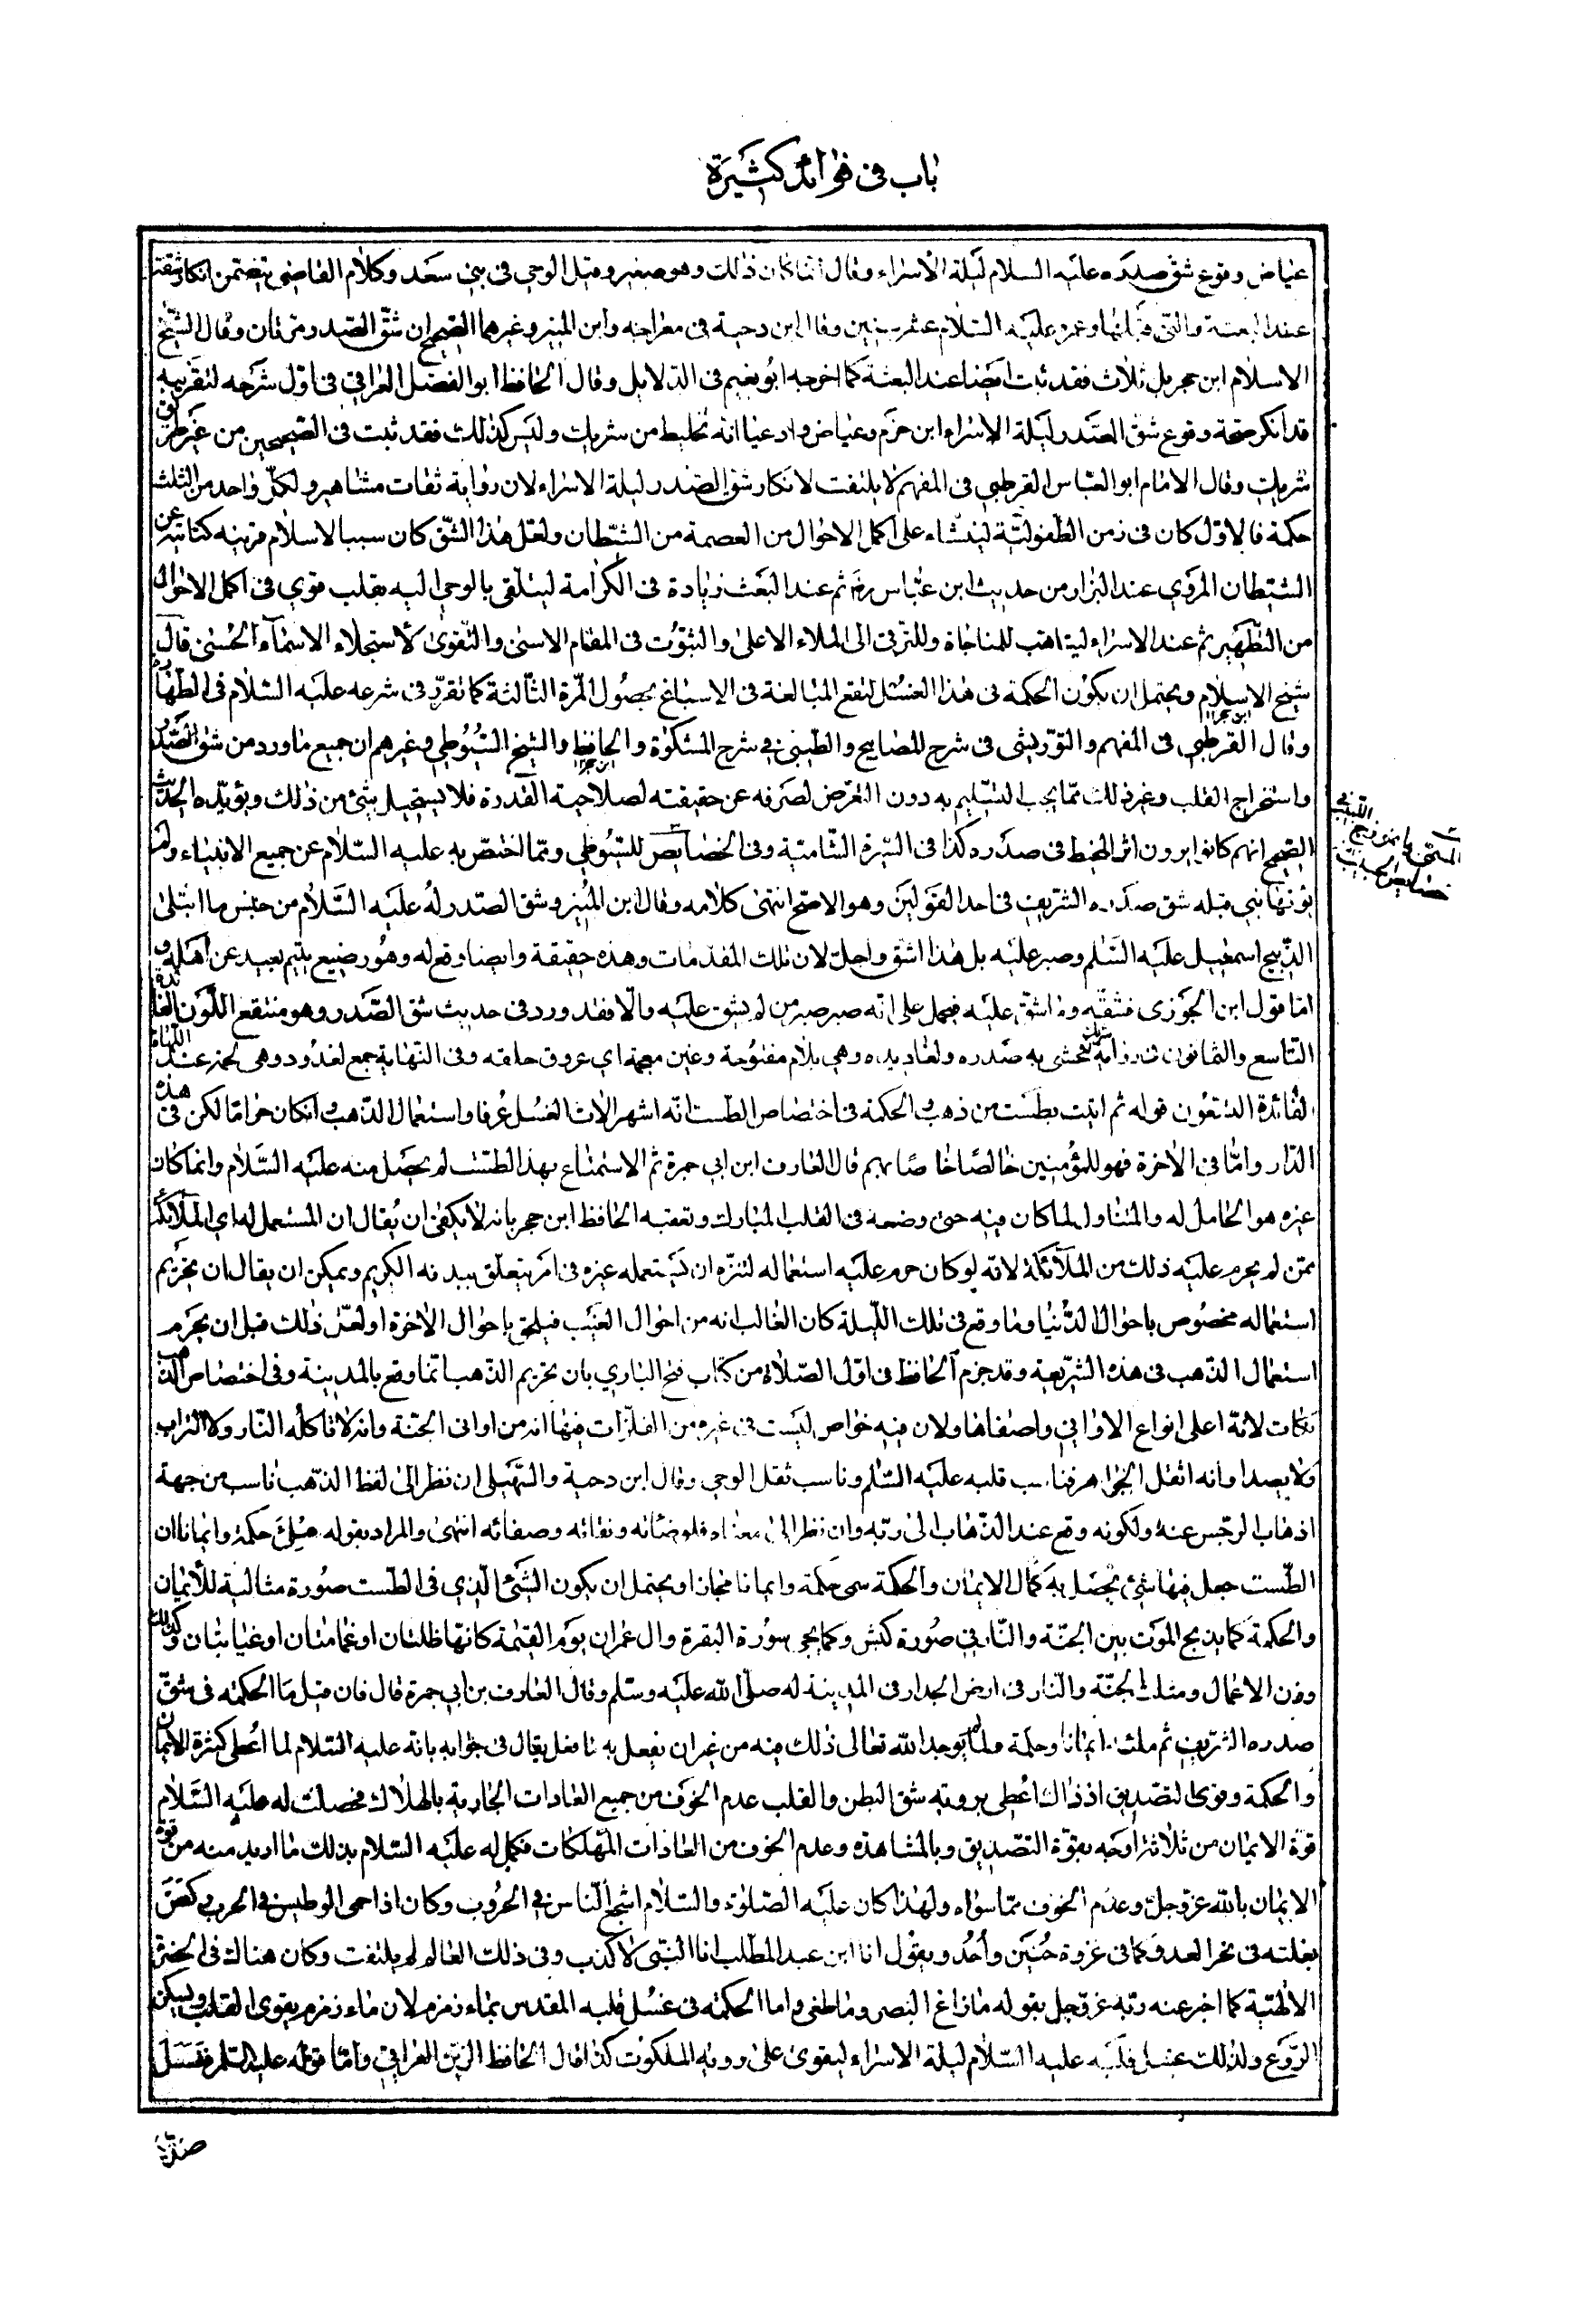 باب فى فوائد كثيرة
عياض وقوع شق صدره عليه السلام ليلة الاسراء وقال انما كان ذالك وهو صغير وقبل الوحي فى بني سعد وكلام القاضى يتضمن انكار شقه
عند البعثة والتى قبلها وعمره عليه السلام عشر سنين وقال ابن دحية فى معراجه وابن المنير وغيرهما الصحيح ان شق الصدر مرتان وقال الشيخ
الاسلام ابن حجر بل ثلاث فقد ثبت ايضا عند البعثة كما اخرجه ابو نعيم فى الدلايل وقال الحافظ ابو الفضل العراقي فى اول شرحه لتقريبه
قد انكر صحة وقوع شق الصدر ليلة الاسراء ابن حزم وعياض وادعيا انه تخليط من شريك وليس كذلك فقد ثبت فى الصحيحين من غير طريق
شريك وقال الامام ابو العباس القرطبي فى المفهم لا يلتفت لانكار شق الصدر ليلة الاسراء لان رواية ثقات مشاهير ولكل واحد من الثلث
حكمة فالاول كان فى زمن الطفولية لينشاء على اكمل الاحوال من العصمة من الشيطان ولعل هذا الشق كان سببا لاسلام قرينه كناية عن
الشيطان المروي عند البزار من حديث ابن عباس رض ثم عند البعث زيادة فى الكرامة ليتلقى بالوحي اليه بقلب قوي فى اكمل الاحوال
من التطهير ثم عند الاسراء ليتاهب للمناجاة وللترقى الى الملاء الاعلى والثبوت فى المقام الاسنى والتقوى لاستجلاء الاسماء الحسنى قال
شيخ الاسلام ابن حجر ويحتمل ان يكون الحكمة فى هذا الغسل لتقع المبالغة فى الاسباغ بحصول المرة الثالثة كما تقرر فى شرعه عليه السلام فى الطهارة
وقال القرطبي فى المفهم والتوربشتى فى شرح المصابيح والطيبى فى شرح المشكوة والحافظ ابن حجر والشيخ السيوطي وغيرهم ان جميع ما ورد من شق الصدر
واستخراج القلب وغير ذلك مما يجب التسليم به دون التعرض لصرفه عن حقيقته لصلاحية القدرة فلا يستحيل بشئ من ذلك ويؤيده الحديث
الصحيح انهم كانوا يرون اثر المخيط فى صدره كذا فى السيرة الشامية وفى الخصايص للسيوطي ومما اختص به عليه السلام عن جميع الانبياء ولم
يؤتها نبي قبله شق صدره الشريف فى احد القولين وهو الاصح انتهى كلامه وقال ابن المنير وشق الصدر له عليه السلام من جنس ما ابتلى
الذبيح اسمعيل عليه السلم وصبر عليه بل هذا اشق واجل لان تلك المقدمات وهذه حقيقة وايضا وقع له وهو رضيع يتيم بعيد عن اهله و
اما قول ابن الجوزى فشقه وما اشق عليه فيحمل على انه صبر صبر من لم يشق عليه والا فقد ورد فى حديث شق الصدر وهو منتقع اللون الفائدة
التاسع والثمانون فى رواية شريك فحشى به صدره ولغاديده وهي بلام مفتوحة وغين معجمة اي عروق حلقه وفى النهاية جمع لغدود وهى لحمة عند اللهاة
الفائدة التسعون قوله ثم اتيت بطست من ذهب والحكمة فى اختصاص الطست انه اشهر الات الغسل عرفا واستعمال الذهب وان كان حراما لكن فى هذه
الدار واما فى الاخرة فهو للمؤمنين خالصا خاصا بهم قال العارف ابن ابي جمرة ثم الاستمتاع بهذا الطست لم يحصل منه عليه السلام وانما كان
غيره هو الحامل له والمتناول لما كان فيه حتى وضعه فى القلب المبارك وتعقبه الحافظ ابن حجر بانه لا يكفى ان يقال ان المستعمل له اي الملائكة
ممن لم يحرم عليه ذلك من الملائكة لانه لو كان حرم عليه استعماله لتنزه ان يستعمله غيره فى امر يتعلق ببدنه الكريم ويمكن ان يقال ان تحريم
استعماله مخصوص باحوال الدنيا وما وقع فى تلك الليلة كان الغالب انه من احوال الغيب فيلحق باحوال الاخرة او لعل ذلك قبل ان يحرم
استعمال الذهب فى هذه الشريعة وقد جزم الحافظ فى اول الصلاة من كتاب فتح الباري بان تحريم الذهب انما وقع بالمدينة وفى اختصاص الذهب
نكات لانه اعلى انواع الاواني واصفاها ولان فيه خواص ليست فى غيره من الفلزات منها انه من اوانى الجنة وانه لا تاكله النار ولا التراب
ولا يصدا وانه اثقل الجواهر فناسب قلبه عليه السلم وناسب ثقل الوحي وقال ابن دحية والسهيلى ان نظر الى لفظ الذهب ناسب من جهة
اذهاب الرجس عنه ولكونه وقع عند الذهاب الى ربه وان نظر الى معناه فلوضائه ونقائه وصفائه انتهى والمراد بقوله ملئ حكمة وايمانا ان
الطست جعل فيها شئ يحصل به كمال الايمان والحكمة سمى حكمة وايمانا مجازا ويحتمل ان يكون الشئ الذي فى الطست صورة مثالية للايمان
والحكمة كما يذبح الموت بين الجنة والنار في صورة كبش وكما يجي سورة البقرة وال عمران يوم القيمة كانها ظلتان او غمامتان او غيايتان وكذلك
وزن الاعمال ومثلت الجنة والنار فى ارض الجدار فى المدينة له صلى الله عليه وسلم وقال العارف بن ابي جمرة قال فان قيل ما الحكمة فى شق
صدره الشريف ثم ملئ ايمانا وحكمة ولم يوجد الله تعالى ذلك فيه من غير ان يفعل به ما فعل يقال فى جوابه بانه عليه السلام لما اعطى كثرة الايمان
والحكمة وقوى التصديق اذ ذاك اعطى برويته شق البطن والقلب عدم الخوف من جميع العادات الجارية بالهلاك فحصلت له عليه السلام
قوة الايمان من ثلاثة اوجه بقوة التصديق وبالمشاهدة وعدم الخوف من العادات المهلكات فكمل له عليه السلام بذلك ما اريد منه من قوة
الايمان بالله عز وجل وعدم الخوف مما سواه ولهذا كان عليه الصلوة والسلام اشجع الناس فى الحروب وكان اذا حمى الوطيس فى الحرب ركض
بغلته فى نحر العدو كما فى غزوة حنين وأحد ويقول انا ابن عبد المطلب انا النبى لا كذب وفى ذلك العالم لم يلتفت وكان هنالك فى الحضرة
الالهية كما اخبر عنه ربه عز وجل بقوله ما زاغ البصر وما طغى واما الحكمة فى غسل قلبه المقدس بماء زمزم لان ماء زمزم يقوى القلب ويسكن
الروع ولذلك غسل قلبه عليه السلام ليلة الاسراء ليقوى على روية الملكوت كذا قال الحافظ الزين العراقي واما قوله عليه السلم فغسل
صدرى